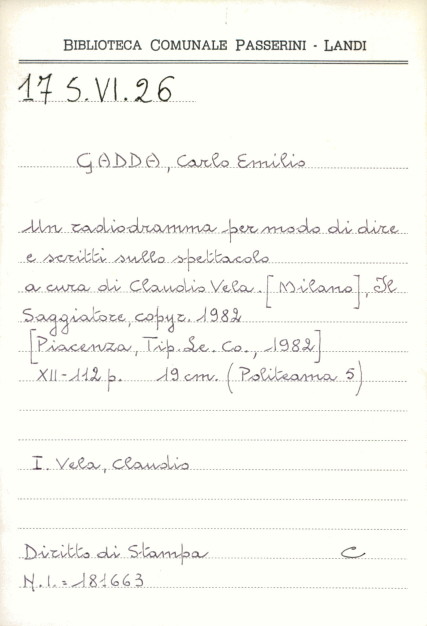 BIBLIOTECA COMUNALE PASSERINI - LANDI
17 S.VI.26
GADDA, Carlo Emilio
Un radiodramma per modo di dire
e scritti sullo spettacolo
a cura di Claudio Vela. [Milano], Il
Saggiatore, copyr. 1982
[Piacenza, Tip. Le. Co., 1982]
XII-112 p. 19 cm. (Politeama 5)
I. Vela, Claudio
Diritto di Stampa C
N.I. = 181663